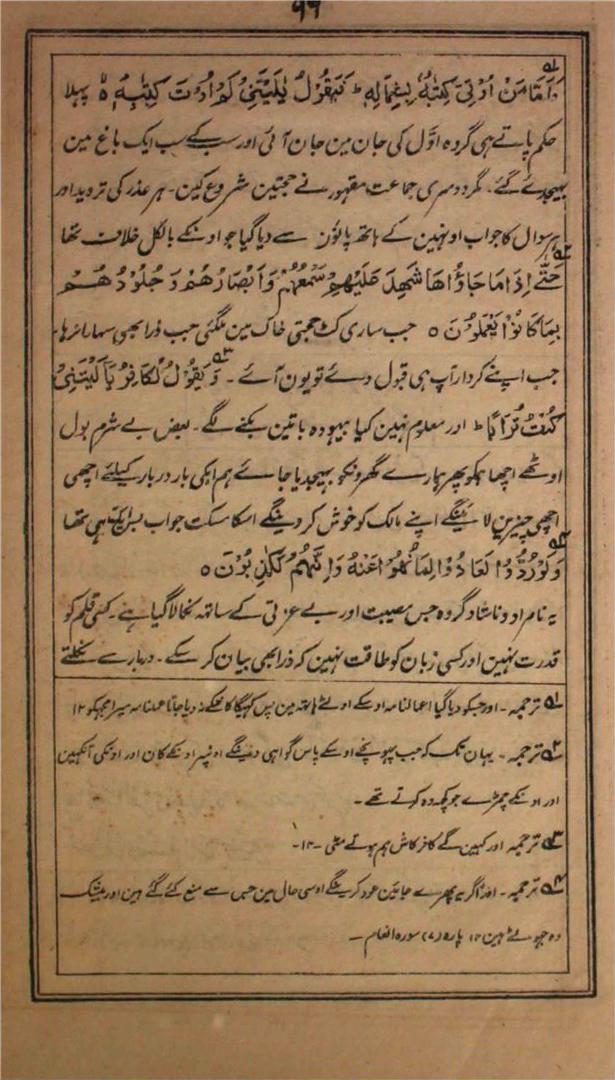 ۵۱
وَاَمَّا مَنْ اُوْتِیَ کِتٰبَهٗ بِشِمَالِهٖ ط فَیَقُوْلُ یٰلَیْتَنِیْ لَمْ اُوْتَ کِتٰبِیَهْ ۵ پہلا
حکم پاتے ہی گروہ اوّل کی جان مین جان آئی اور سب کے سب ایک باغ مین
بھیجدئے گئے۔ مگر دوسری جماعت مقہور نے حجتین شروع کین۔ ہر عذر کی تردید اور
ہر سوال کا جواب اونہین کے ہاتھ پانوٴن سے دیا گیا جو اونکے بالکل خلاف تھا
۵۲
حَتّٰے اِذَا مَا جَاؤُاهَا شَهِدَ عَلَیْهِمْ سَمْعُهُمْ وَاَبْصَارُهُمْ وَجُلُوْدُهُمْ
بِمَا کَانُوْا یَعْمَلُوْنَ ۵ جب ساری کٹ حجتی خاک مین ملگئی جب ذرا بھی سہارا نرہا۔
جب اپنے کردار آپ ہی قبول دئے تو یون آئے۔ ۵۳ وَیَقُوْلُ الْکَافِرُ یَا لَیْتَنِیْ
کُنْتُ تُرَابًا ط اور معلوم نہین کیا بیہودہ باتین بکنے لگے۔ بعض بے شرم بول
اوٹھے اچھا ہمکو پھر ہمارے گھرونکو بھیجدیا جائے ہم ابکی بار دربار کیلئے اچھی
اچھی چیزین لائینگے اپنے مالک کو خوش کردینگے اسکا مسکت جواب بس ایک ہی تھا
۵۴
وَلَوْ رُدُّوْا لَعَادُوْا لِمَا نُهُوْا عَنْهُ وَاِنَّهُمْ لَکٰذِبُوْنَ ۵
یہ نامراد و ناشاد گروہ جس مصیبت اور بے عزتی کے ساتھہ نکالا گیا ہے۔ کسی قلم کو
قدرت نہین اور کسی زبان کو طاقت نہین کہ ذرا بھی بیان کر سکے۔ دربار سے نکلتے
۵۱ ترجمہ۔ اور جسکو دیا گیا اعمالنامہ اوسکے اولٹے ہاتھہ مین پس کہیگا کاشکے نہ دیا جاتا عملنامہ میرا مجہکو ۱۲
۵۲ ترجمہ۔ یہان تک کہ جب پہونچے اوسکے پاس گواہی دینگے اونپر اونکے کان اور اونکی آنکہین
اور اونکے چمڑے جو کچہ وہ کرتے تھے۔
۵۳ ترجمہ اور کہین گے کافر کاش ہم ہوتے مٹی ۔۱۲۔
۵۴ ترجمہ۔ اور اگر پھیرے جائین عود کرینگے اوسی حال مین جس سے منع کئے گئے ہین اور بیشک
وہ جہوٹے ہین ۱۲ پارہ (۷) سورہ انعام۔